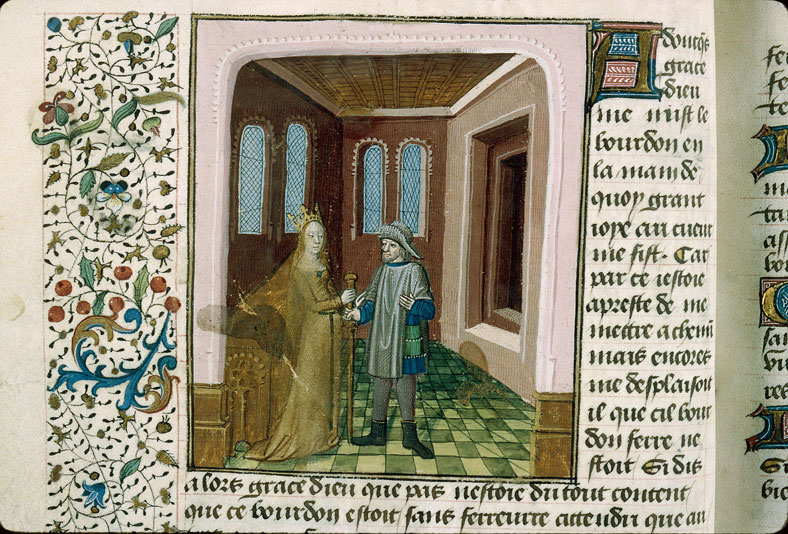 Adoncqs
grace
dieu
me mist le
bourdon en
la main de
quoy grant
ioye au cueur
me fist. Car
par ce iestoie
apreste de me
mettre a chemin
mais encores
me desplaisoit
il que cil bour
don ferre ne
stoit Si dis
a lors grace dieu que pas nestoie du tout content
que ce bourdon estoit sans ferreure attendu que au